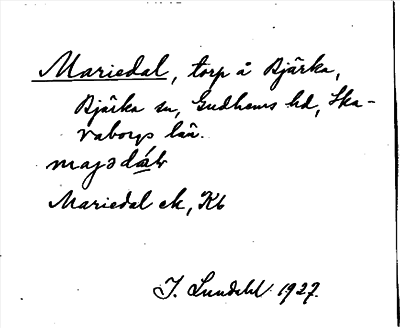 Mariedal, torp å Bjärka,
Bjärka sn, Gudhems hd, Ska-
raborgs län.
Mariedal ek, Kb
J. Lundahl 1927.